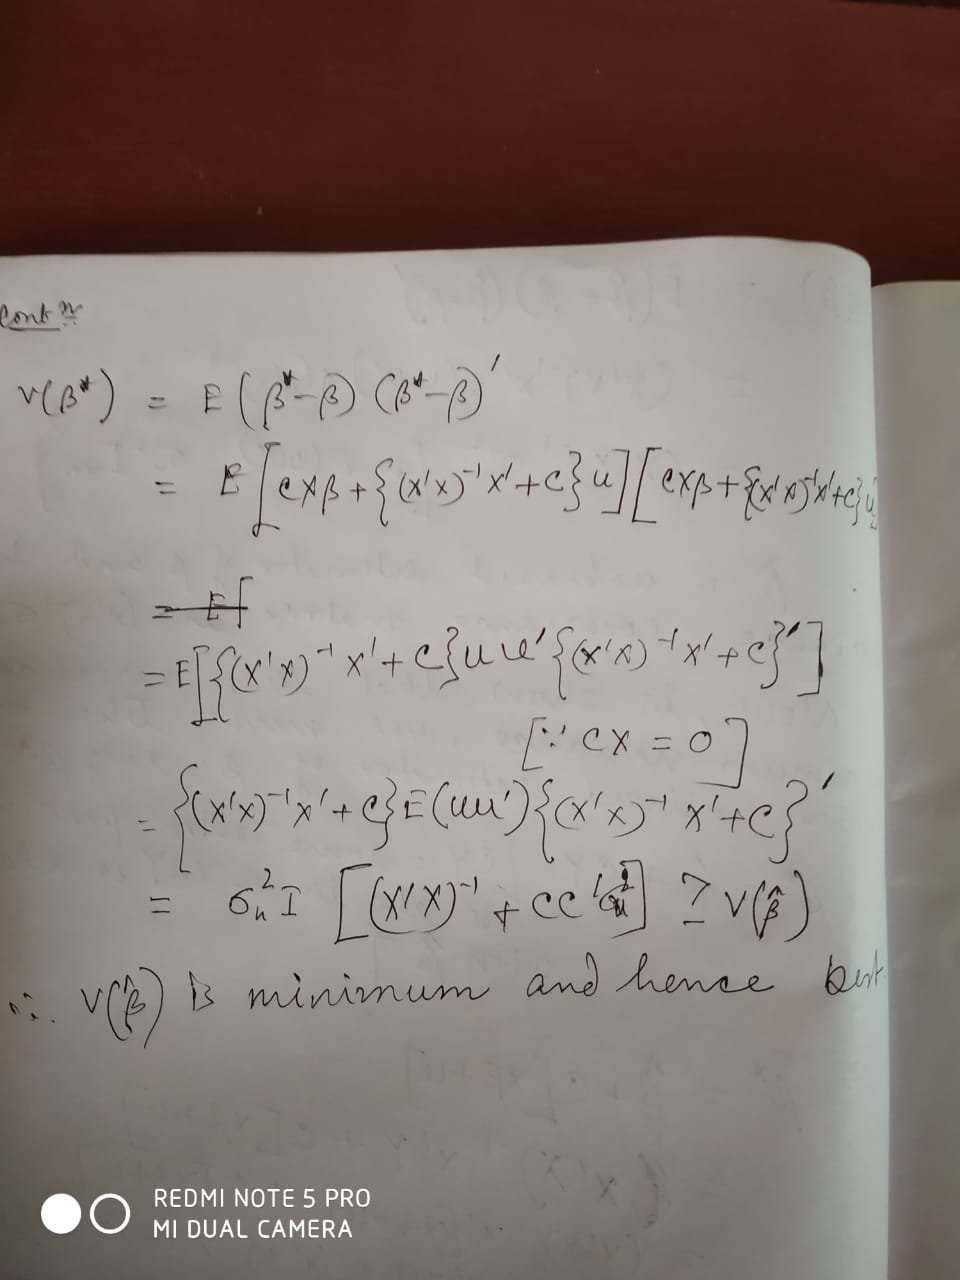 Contn
V(β*) = E(β*-β) (β*-β)'
= E[cxβ+{(x'x)⁻¹x'+c}u][cxβ+{(x'x)⁻¹x'+c}u
= E[
= E[{(x'x)⁻¹x'+c}uu'{(x'x)⁻¹x'+c}']
[∵ cx = 0]
= {(x'x)⁻¹x'+c}E(uu'){(x'x)⁻¹x'+c}'
= σ²ᵤI [(x'x)⁻¹ + cc'] ≥ V(β̂)
∴ V(β̂) is minimum and hence best
REDMI NOTE 5 PRO
MI DUAL CAMERA